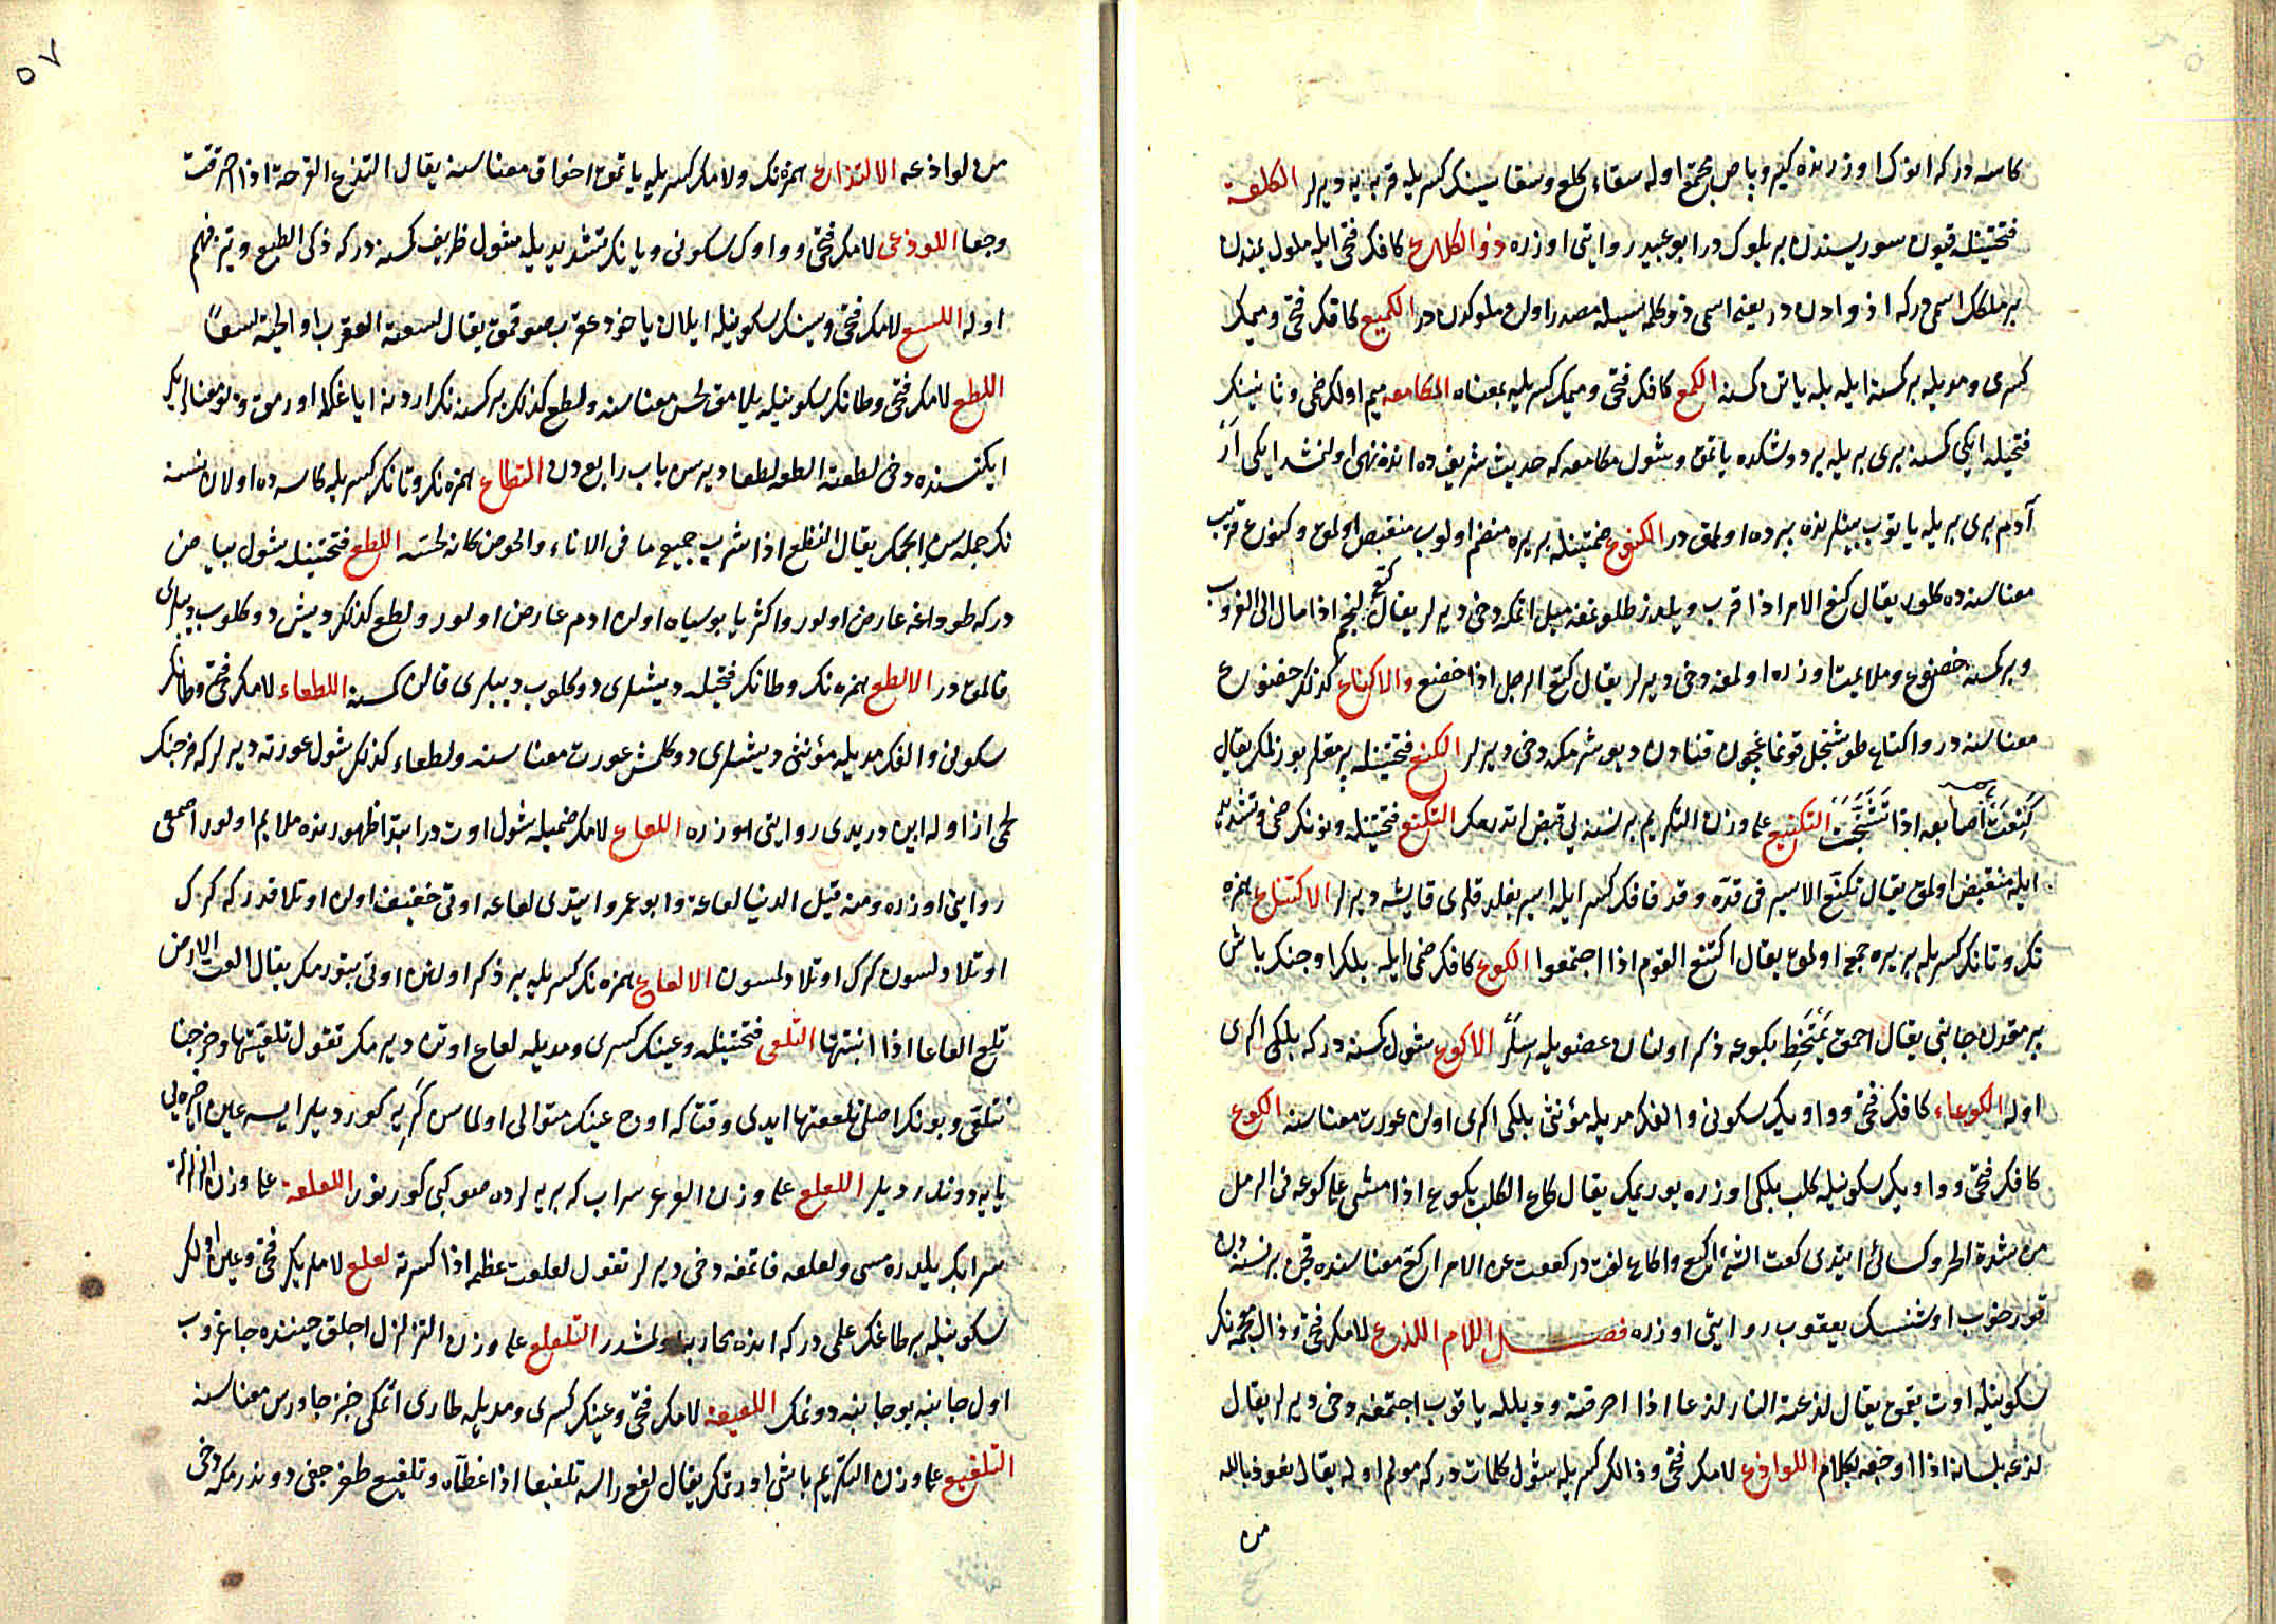 كاسه در كه انوك اوزرنده كير وباص مجتمع اوله سقاء كلع وسقا سينك كسريله قربه يه ديرلر الكلعة
فتحتينله قيون سوريسندن بر بلوك در ابو عبيد روايتى اوزره ذو الكلاع كافك فتحى ايله ملوك يمندن
بر ملكك اسمى در كه اذوادن در يعنى اسمى ذو كلمه سيله مصدر اولن ملوكدن در الكميع كافك فتحى وميمك
كسرى ومديله بر كسنه ايله بله ياتن كسنه الكمع كافك فتحى وميمك كسريله بمعناه المكامعه ميم اولك ضمى وثانينك
فتحيله ايكى كسنه برى بريله بر دوشكده ياتمق وشول مكامعه كه حديث شريفده اندن نهى اولنمشدر ايكى ار
آدم برى بريله ياتوب بينلرنده پرده اولمق در الكنوع ضمتينله بر يره منضم اولوب منقبض اولمق وكنوع قريب
معناسنه ده كلور يقال كنع الامر اذا قرب ويلدز طلوعنه ميل اتمكه دخى ديرلر يقال كنع النجم اذا مال الى الغروب
وبر كسنه خضوع وملايمت اوزره اولمغه دخى ديرلر يقال كنع الرجل اذا خضع والاكناع كذلك خضوع
معناسنه در واكناع طوشنجل قونماغيچون قنادن ديوشرمكه دخى ديرلر الكنع فتحتينله پرمقلر بوزلمك يقال
كَنِعَتْ أصابعه اذا تَشَنَّجَتْ التكنيع على وزن التكريم بر نسنه يى قبض اتدرمك التكنع فتحتينله ونونك ضمى وتشديدى
ايله منقبض اولمق يقال تكنّع الاسير فى قدّه وقد قافك كسر ايله اسير بغلدقلرى قايشه ديرلر الاكتناع همزه
نك وتانك كسريله بر يره جمع اولمق يقال اكتنع القوم اذا اجتمعوا الكوع كافك ضمى ايله بلك اوجنك باش
پرمقدن جانبى يقال احمق يَمْتَخِط بكوعه ذكر اولنان عضويله سلر الاكوع شول كسنه در كه بلكى اكرى
اوله الكوعاء كافك فتحى وواويك سكونى والفك مديله مؤنثى بلكى اكرى اولن عورت معناسنه الكوع
كافك فتحى وواويك سكونيله كلب بلكى اوزره يوريمك يقال كاع الكلب يكوع اذا مشى على كوعه فى الرمل
من شدة الحر وكسائى ايتدى كعت الشئ اكيع واكاع لغت در كععت عن الامر اكع معناسنده قچن بر نسنه دن
قورخوب اوشنسك يعقوب روايتى اوزره فصل اللام اللذع لامك فتحى وذال معجمه نك
سكونيله اوت يقمق يقال لذعته النار لذعا اذا احرقته وديلله ياقوب اجتمغه دخى ديرلر يقال
لذعه بلسانه اذا اوجعه بكلام اللواذع لامك فتحى وذالك كسريله شول كلمات در كه مولم اوله يقال نعوذ بالله
من
٥٧
من لواذعه الالتذاع همزه نك ولامك كسريله ياتمق احتراق معناسنه يقال التذع القرحة اذا احرقت
وجعا اللوذعى لامك فتحى وواوك سكونى ويانك تشديديله شول ظريف كسنه در كه ذكى الطبع وتيز فهم
اوله اللسع لامك فتحى وسينك سكونيله ايلان ياخود عقرب صوقمق يقال لسعته العقرب او الحية لسعًا
اللطع لامك فتحى وطانك سكونيله يلامق لحس معناسنه ولطع كذلك بر كسنه نك اردنه اياغكله اورمق وبو معنالرك
ايكسنده دخى لطعته الطعه لطعا ديرسن باب رابعدن التطاع همزه نك وتانك كسريله كاسه ده اولان نسنه
نك جمله سن ايچمك يقال التطع اذا شرب جميع ما فى الاناء والحوض كانه لحسه اللطع فتحتينله شول بياض
در كه طوداغه عارض اولور واكثريا بو سياه اولن ادمه عارض اولور ولطع كذلك ديش دوكلوب ديبلرى
قالمق در الالطع همزه نك وطانك فتحيله ديشلرى دوكلوب ديبلرى قالن كسنه اللطعاء لامك فتحى وطانك
سكونى والفك مديله مؤنثى ديشلرى دوكلمش عورت معناسنه ولطعاء كذلك شول عورته ديرلر كه فرجنك
لحمى از اوله ابن دريدى روايتى اوزره اللعاع لامك ضميله شول اوت در ابتدا ظهورنده ملايم اولور اصمعى
روايتى اوزره ومنه قيل الدنيا لعاعة وابو عمرو ايتدى لعاعه اوتى خفيف اولن اوتلاقدر كه كرك
اوتلاولسون كرك اوتلاولمسون الالعاع همزه نك كسريله ير ذكر اولنن اوتى بتورمك يقال العت الارض
تلع العاعا اذا انبتتها التلعى فتحتينله وعينك كسرى ومديله لعاع اوتن ديرمك تقول تلعيتها وخرجنا
نتلعى وبونك اصلى تلععتها ايدى وقتا كه اوچ عينك متوالى اولماسن كريه كورديلر ايسه عين اخيره يى
يايه دوندرديلر اللعلع على وزن الفرعر سراب كه بريه لرده صو كبى كورينور اللعلعة على وزن الزلزلة
سرابك يلدره مسى ولعلعه قاتمغه دخى ديرلر تقول لعلعت عظمه اذا كسرته لعلع لاملريك فتحى وعين اولك
سكونيله بر طاغك علمى در كه انده محاربه اولمشدر التلعلع على وزن التزلزل اجلق حيننده جاغروب
اول جانبه بو جانبه دونمك اللعيعة لامك فتحى وعينك كسرى ومديله طارى اتمكى خبز جاورس معناسنه
التلفيع على وزن التكريم باشى اورتمك يقال لفع راسه تلفيعا اذا غطّاه وتلفيع طغرجغى دوندرمكه دخى